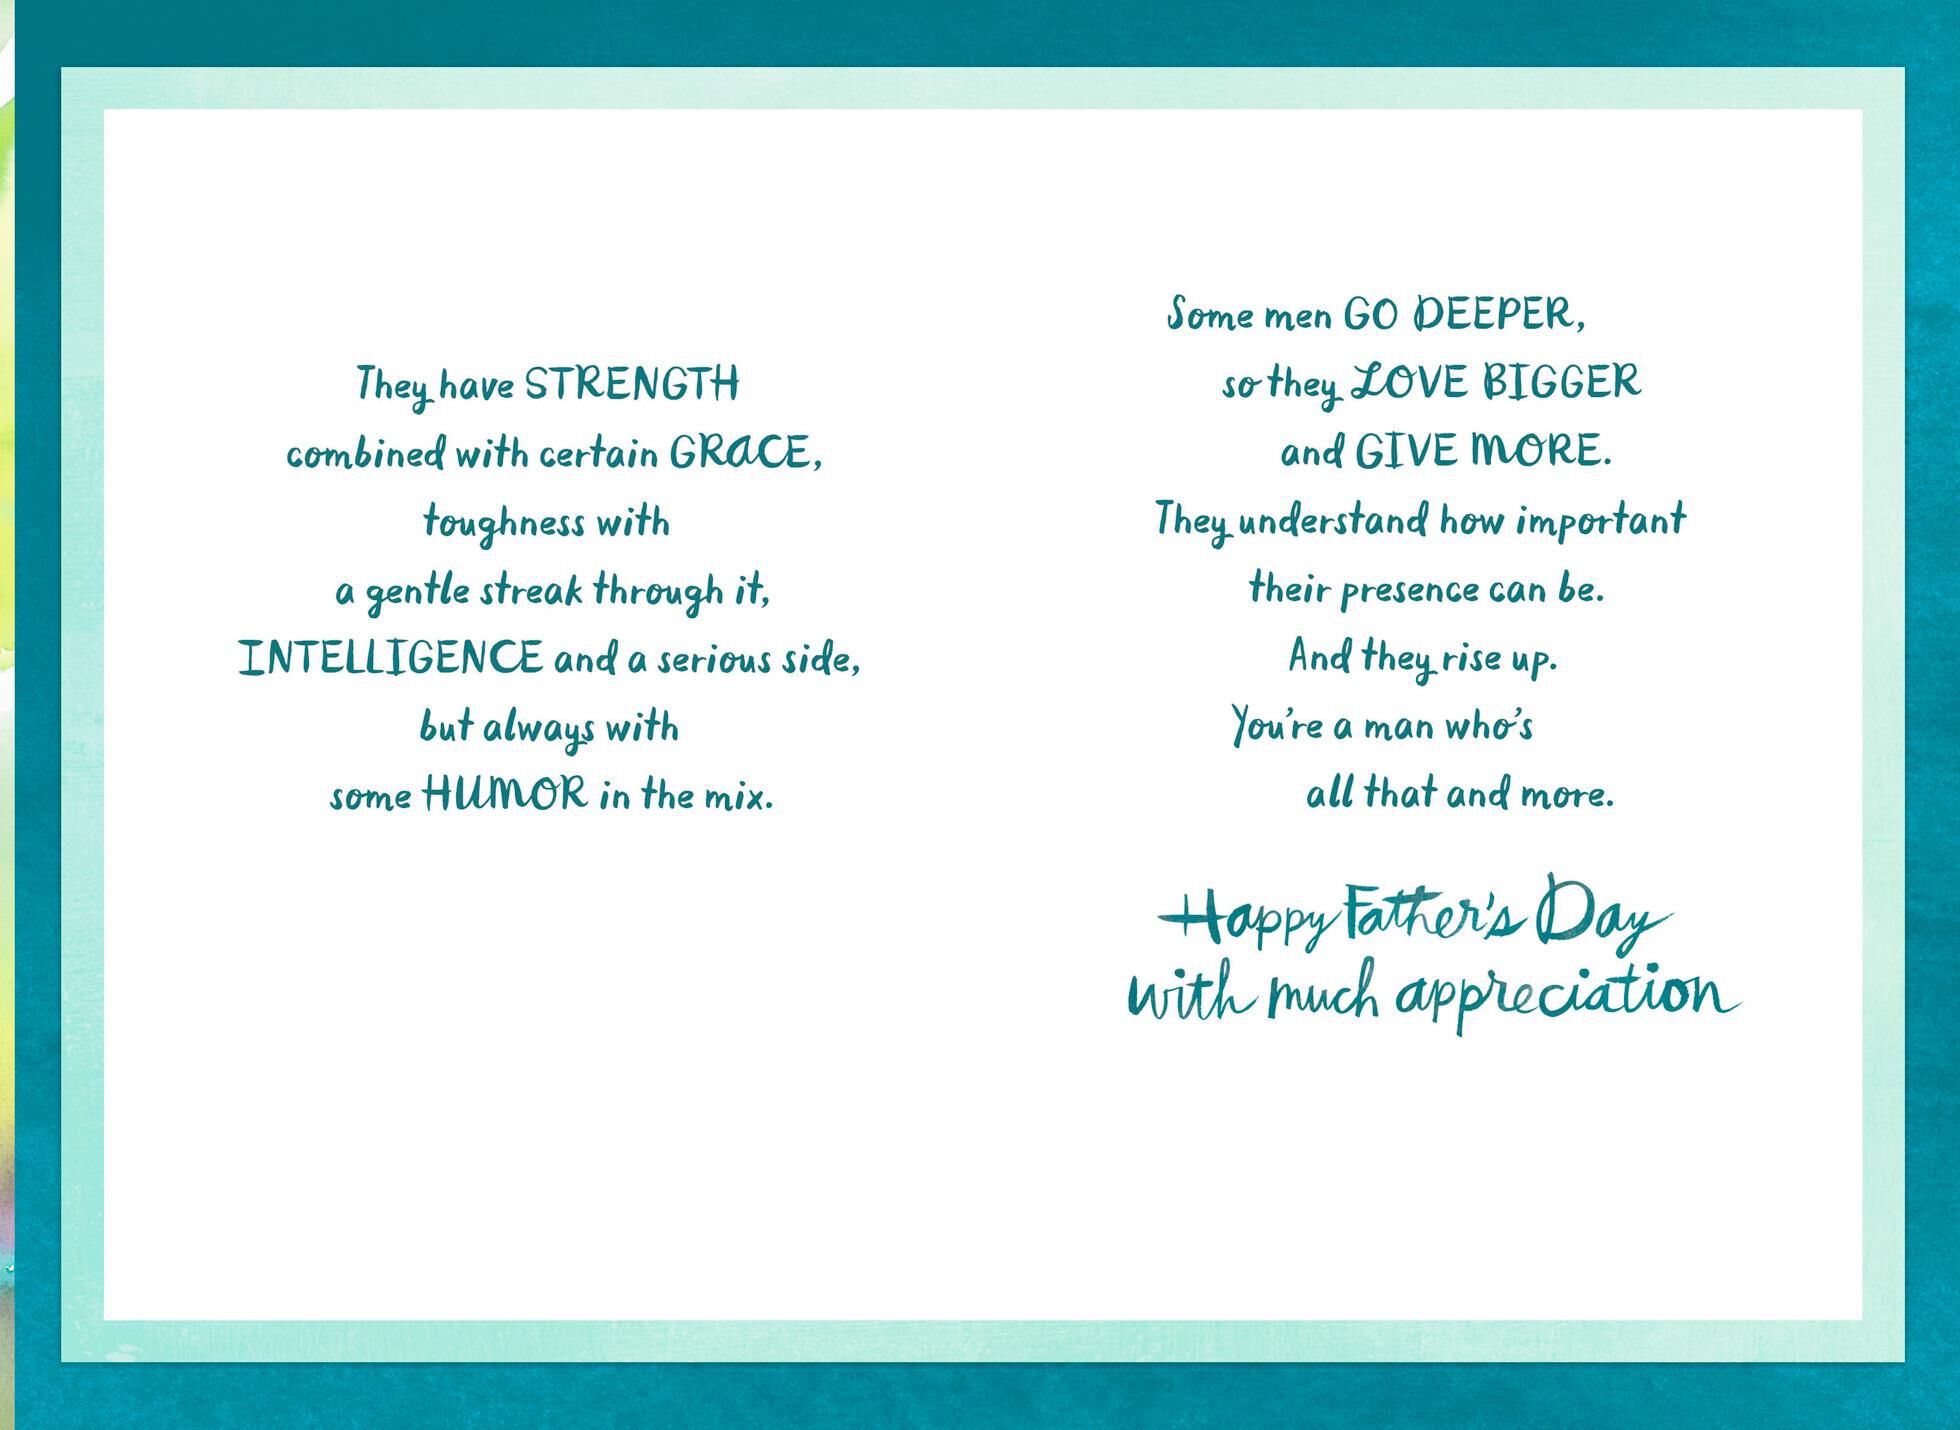 They have STRENGTH
combined with certain GRACE,
toughness with
a gentle streak through it,
INTELLIGENCE and a serious side,
but always with
some HUMOR in the mix.
Some men GO DEEPER,
so they LOVE BIGGER
and GIVE MORE.
They understand how important
their presence can be.
And they rise up.
You're a man who's
all that and more.
Happy Father's Day
with much appreciation